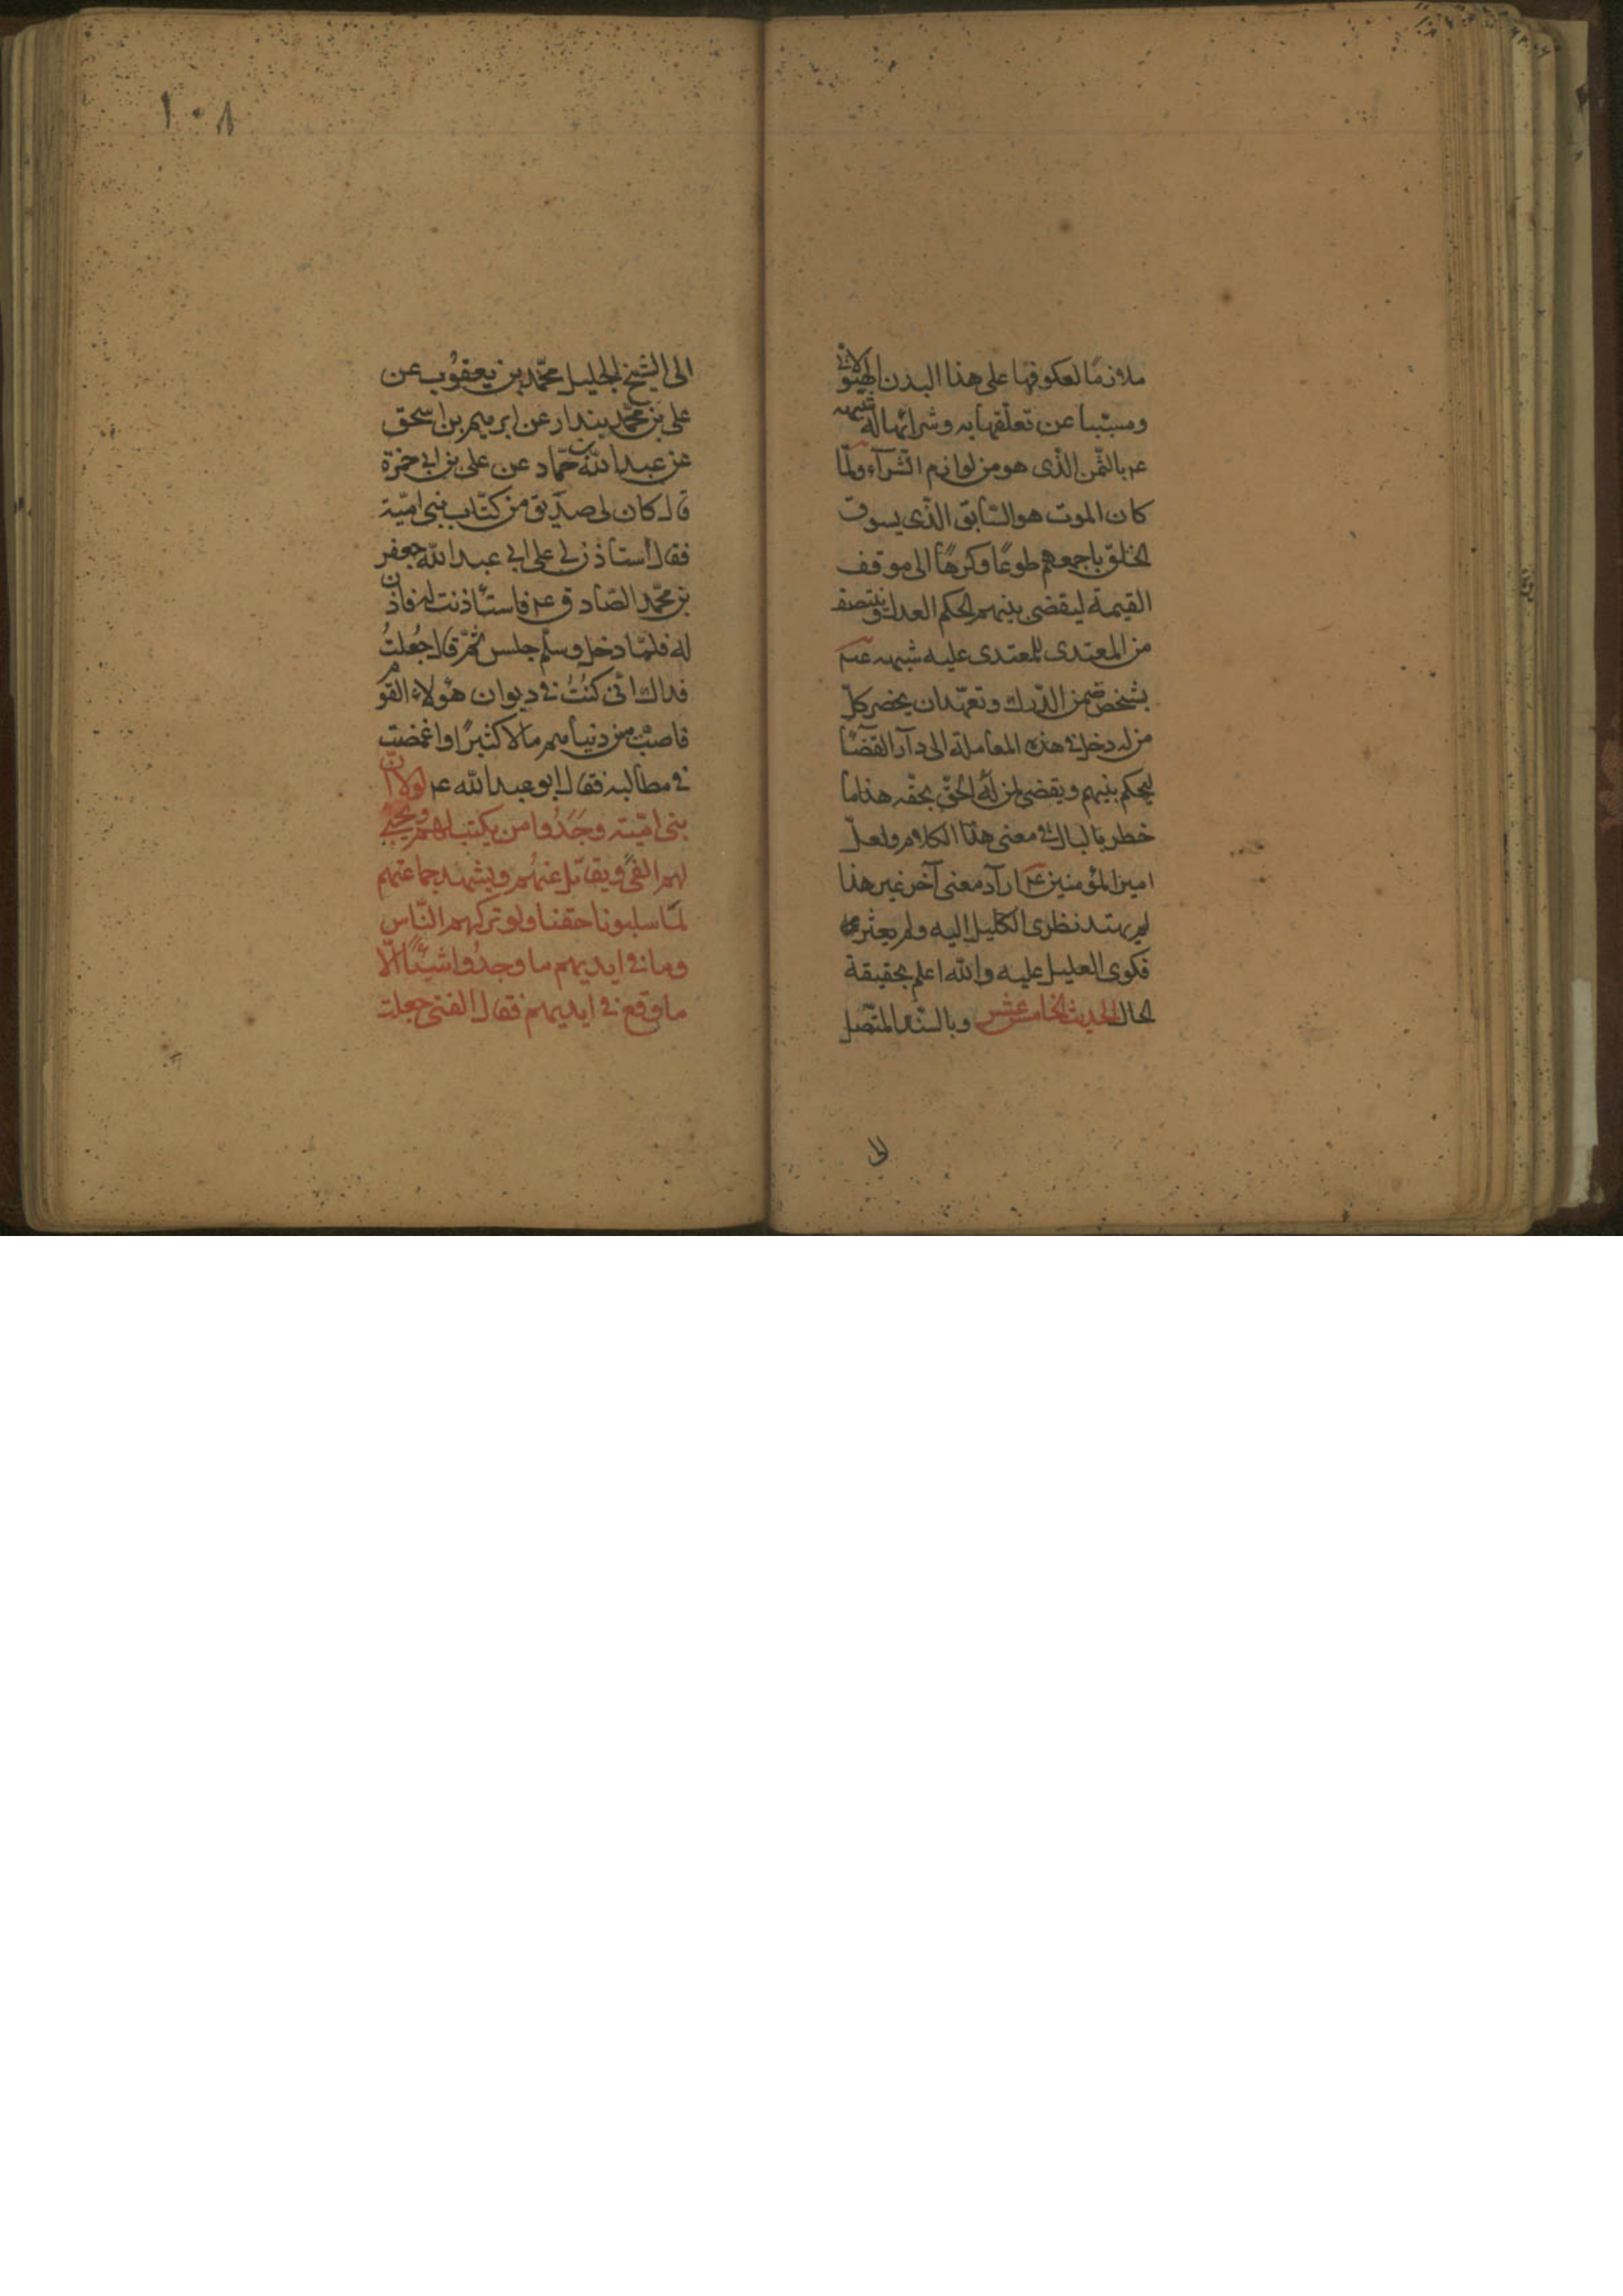 ملازمًا لعكوفها على هذا البدن الهيولانى
ومسببا عن تعلّقها به وشرائها له شبهه
عم بالثّمن الّذى هو من لوازم الشّرآء ولمّا
كان الموت هو السّابق الّذى يسوق
الخلق باجمعهم طوعًا وكرهًا الى موقف
القيمة ليقضى بينهم الحكم العدل وينتصف
من المعتدى للمعتدى عليه شبهه عم
بشخص ضمن الدّرك وتعهّد ان يحضر كلّ
من له دخل فى هذه المعاملة الى دآر القضآء
ليحكم بينهم ويقضى لمن له الحقّ بحقّه هذا ما
خطر بالبال فى معنى هذا الكلام ولعلّ
امير المؤمنين عم اراد معنى آخر غير هذا
لم يهتد نظرى الكليل اليه ولم يعثر
فكرى العليل عليه والله اعلم بحقيقة
الحال الحديث الخامس عشر وبالسّند المتّصل
الى
١٠٨
الى الشّيخ الجليل محمّد بن يعقوب عن
على بن محمّد بن بندار عن ابرهيم بن اسحق
عن عبد الله بن حمّاد عن على بن ابى حمزة
قال كان لى صديق من كتّاب بنى اميّة
فقال استاذن لى على ابى عبد الله جعفر
بن محمّد الصّادق عم فاستأذنت له فاذن
له فلمّا دخل وسلّم جلس ثمّ قال جُعلتُ
فداك انّى كنتُ فى ديوان هؤلاء القوم
فاصبت من دنياهم مالا كثيرًا واغمضت
فى مطالبه فقال ابو عبد الله عم لولا انّ
بنى اميّة وجَدُوا من يكتب لهم ويجبى
لهم الفىء ويقاتل عنهم ويشهد جماعتهم
لمّا سلبونا حقنا ولو تركهم النّاس
وما فى ايديهم ما وجدُوا شيئًا الّا
ما وقع فى ايديهم فقال الفتى جعلت